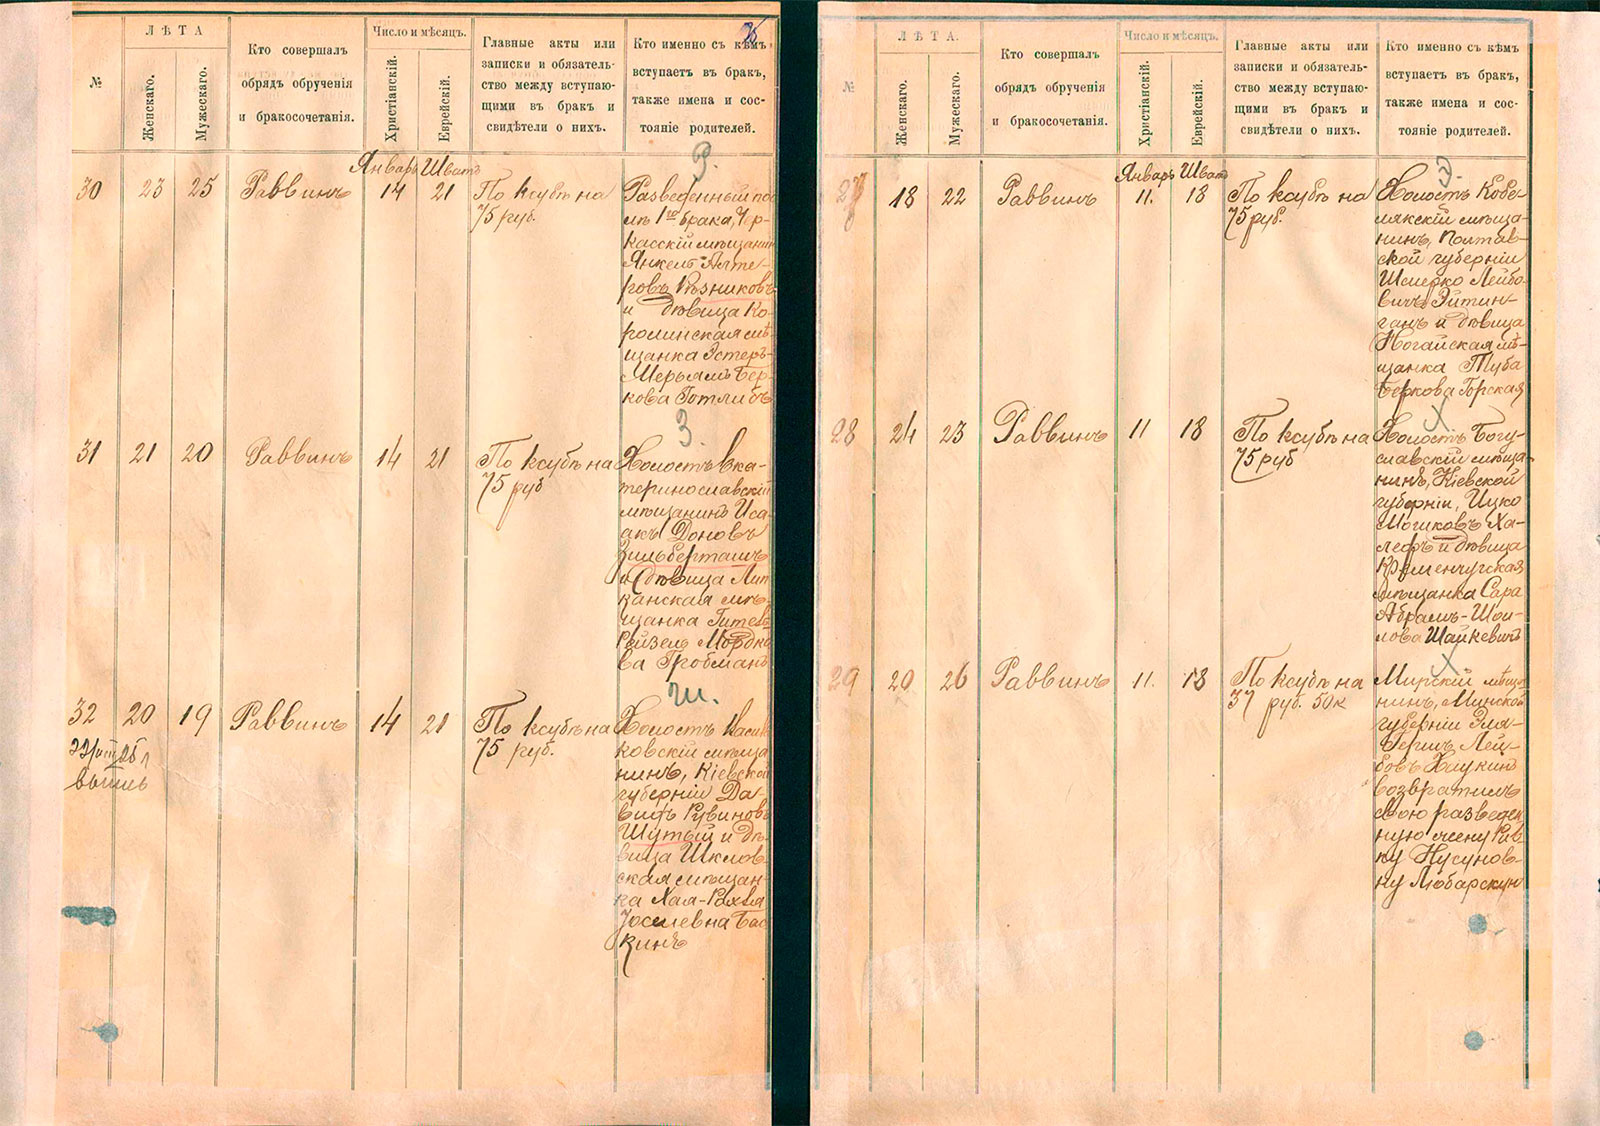 Л Ѣ Т А
№
Женскаго.
Мужескаго.
Кто совершалъ
обрядъ обрученія
и бракосочетанія.
Число и мѣсяцъ.
Христіанскій.
Еврейскій.
Главные акты или
записки и обязатель-
ство между вступаю-
щими въ бракъ и
свидѣтели о нихъ.
Кто именно съ кѣмъ
вступаетъ въ бракъ,
также имена и сос-
тояніе родителей.
Январь Шватъ
30 23 25 Раввинъ 14 21 По ксубѣ на
75 руб.
З.
Разведенный пос
лѣ 1го брака, Чер-
касскій мѣщанинъ
Янкель Алте-
ровъ Рѣзниковъ
и дѣвица Ко-
ромнская мѣ-
щанка Эстеръ-
Шерьямъ Бер-
кова Готлибъ
31 21 20 Раввинъ 14 21 По ксубѣ на
75 руб
З.
Холостъ Ека-
теринославскій
мѣщанинъ Иса-
акъ Доновъ
Зильберташъ
и дѣвица Лип-
канская мѣ-
щанка Гитель
Рейзель Мордко
ва Гробманъ
32 20 19 Раввинъ 14 21 По ксубѣ на
75 руб.
Ш.
Холостъ Василь
ковскій мѣща
нинъ, Кіевской
губерніи Да-
видъ Рувиновъ
Шутый и дѣ-
вица Шклов-
ская мѣщан-
ка Хая-Рахля
Іоселевна Бас
кинъ
Л Ѣ Т А.
№
Женскаго.
Мужескаго.
Кто совершалъ
обрядъ обрученія
и бракосочетанія.
Число и мѣсяцъ.
Христіанскій.
Еврейскій.
Главные акты или
записки и обязатель-
ство между вступаю-
щими въ бракъ и
свидѣтели о нихъ.
Кто именно съ кѣмъ
вступаетъ въ бракъ,
также имена и сос-
тояніе родителей.
Январь Шватъ
27 18 22 Раввинъ 11. 18 По ксубѣ на
75 руб.
Э.
Холостъ Кобе-
лякскій мѣща-
нинъ, Полтав-
ской губерніи
Шмерко Лейбо-
вичъ Эйтин-
ганъ и дѣвица
Ногайская мѣ-
щанка Туба
Беркова Горская
28 24 23 Раввинъ 11 18 По ксубѣ на
75 руб
Х
Холостъ Богу-
славскій мѣща-
нинъ, Кіевской
губерніи, Ицко
Мошковъ Ха-
лефъ и дѣвица
Кременчугская
мѣщанка Сара
Абрамъ-Шои-
лова Шайкевичъ
29 20 26 Раввинъ 11. 18 По ксубѣ на
37 руб. 50к
Х
Мирскій мѣща
нинъ, Минской
губерніи Эля-
Гершъ Лей-
бовъ Хаукинъ
возвратилъ
свою разведен
ную жену Рив
ку Нусунов-
ну Любарскую